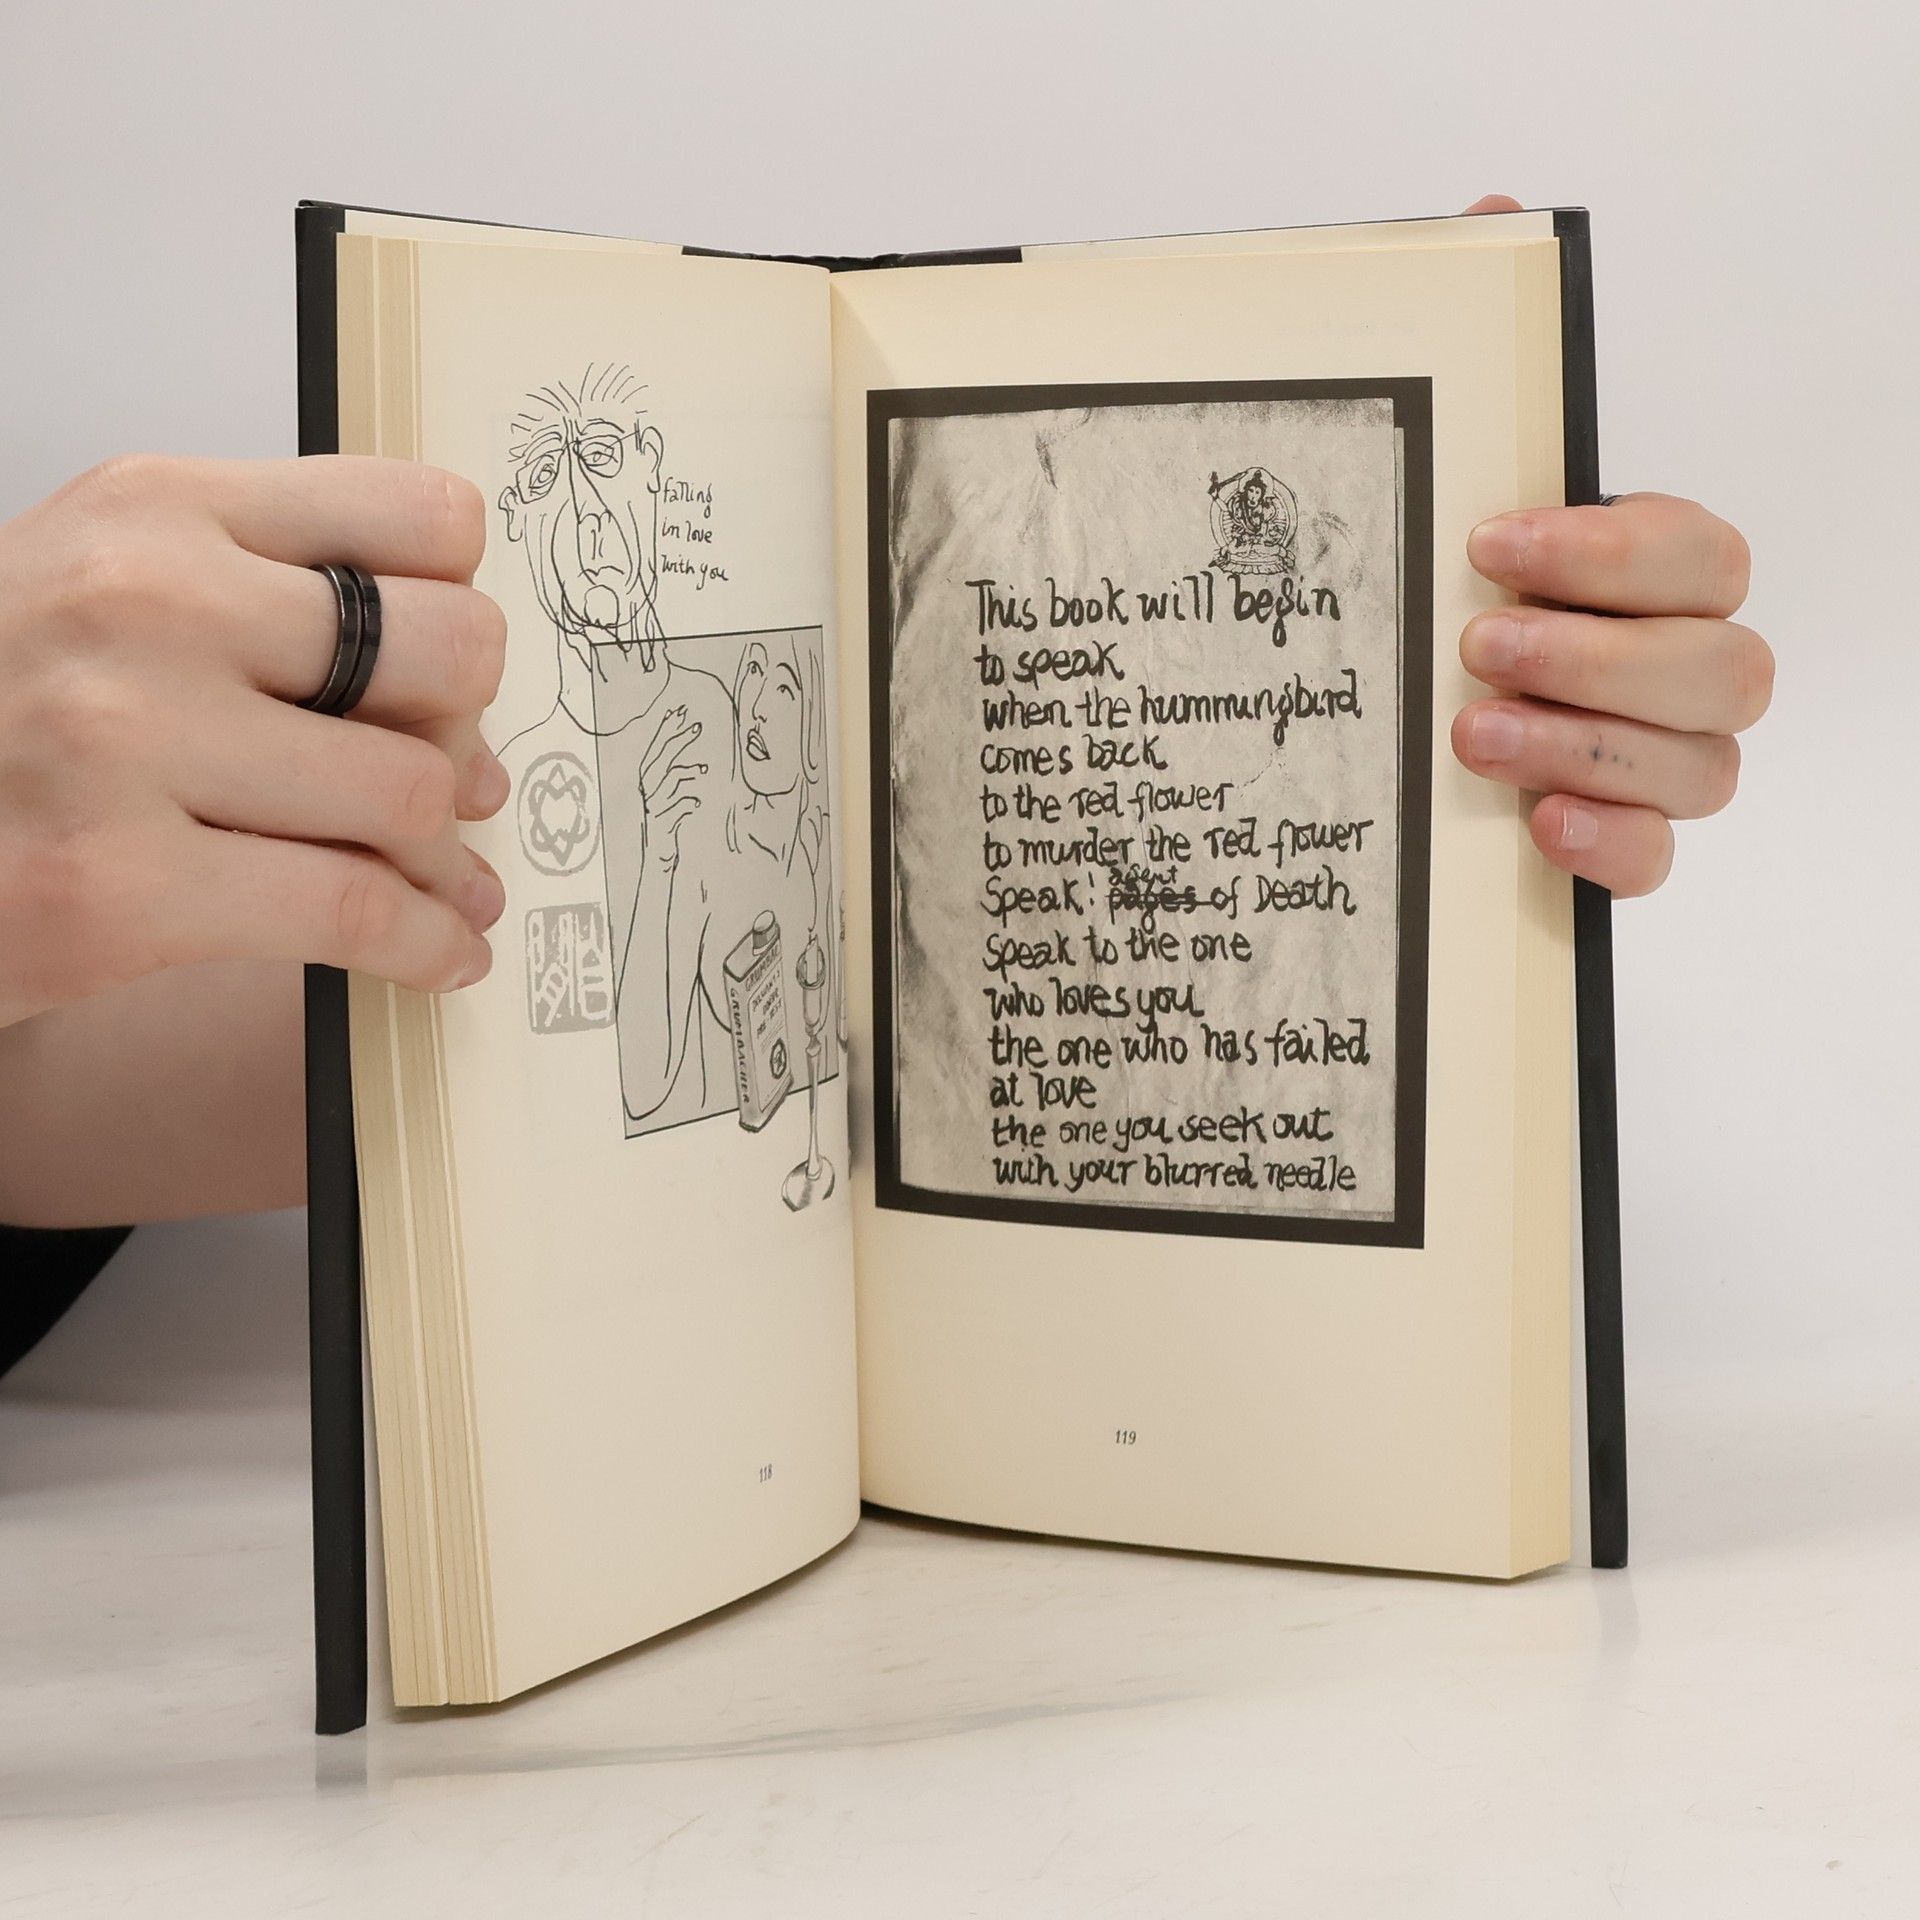 falling
in love
with you
GRUMBACHER
118
This book will begin
to speak
when the hummingbird
comes back
to the red flower
to murder the red flower
agent
Speak! pages of Death
Speak to the one
who loves you
the one who has failed
at love
the one you seek out
with your blurred needle
119